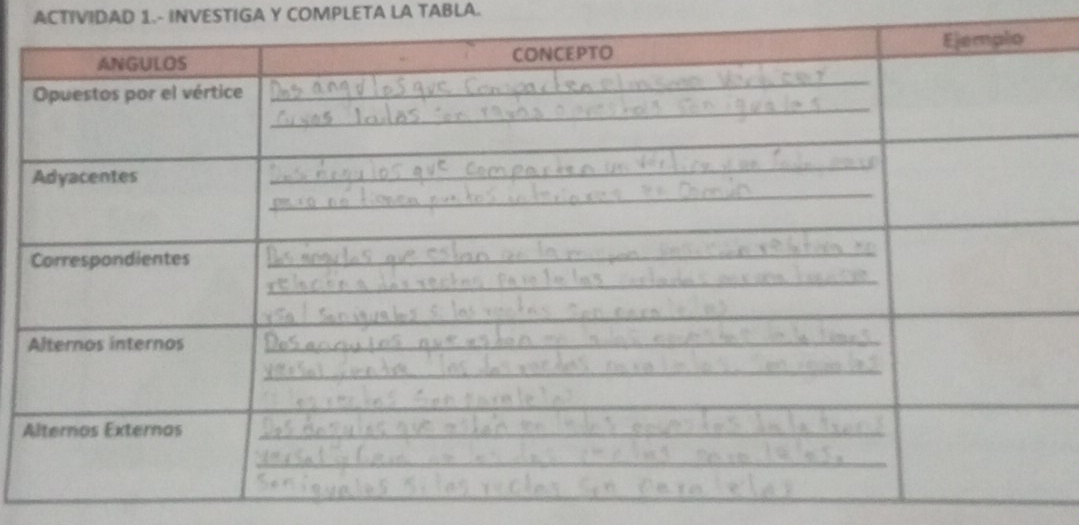 ACTIVIDAD 1.- INVESTIGA Y COMPLETA LA TABLA.
ANGULOS CONCEPTO Ejemplo
Opuestos por el vértice
Dos angulos que comparten el mismo vertice
cuyos lados son rayos opuestos son iguales
Adyacentes
Dos angulos que comparten un vertice y un lado
pero no tienen puntos interiores en común
Correspondientes
Dos angulos que estan en la misma posicion relativa
relacion a dos rectas paralelas cortadas por una
son iguales si las rectas son paralelas
Alternos internos
Dos angulos que estan en lados opuestos de la trans
versal y entre las dos rectas paralelas. Son iguales
las rectas son paralelas
Alternos Externos
Dos angulos que están en lados opuestos de la trans
versal y fuera de las dos rectas paralelas.
Son iguales si las rectas son paralelas